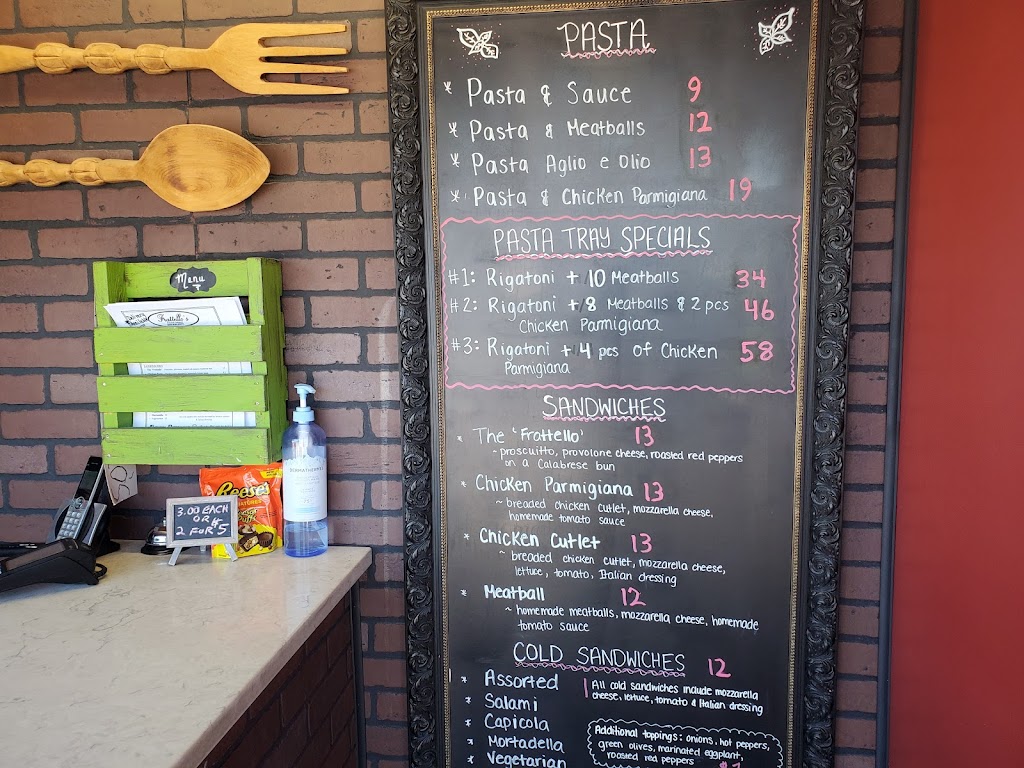 PASTA
* Pasta & Sauce 9
* Pasta & Meatballs 12
* Pasta Aglio e Olio 13
* Pasta & Chicken Parmigiana 19
PASTA TRAY SPECIALS
#1: Rigatoni + 10 Meatballs 34
#2: Rigatoni + 8 Meatballs & 2 pcs 46
Chicken Parmigiana
#3: Rigatoni + 4 pcs of Chicken 58
Parmigiana
SANDWICHES
* The 'Frattello' 13
~ prosciutto, provolone cheese, roasted red peppers
on a Calabrese bun
* Chicken Parmigiana 13
~ breaded chicken cutlet, mozzarella cheese,
homemade tomato sauce
* Chicken Cutlet 13
~ breaded chicken cutlet, mozzarella cheese,
lettuce, tomato, Italian dressing
* Meatball 12
~ homemade meatballs, mozzarella cheese, homemade
tomato sauce
COLD SANDWICHES 12
* Assorted
* Salami
* Capicola
* Mortadella
* Vegetarian
All cold sandwiches include mozzarella
cheese, lettuce, tomato & Italian dressing
Additional toppings: onions, hot peppers,
green olives, marinated eggplant,
roasted red peppers
Menu
Frattello's
Reese's
3.00 EACH
OR
2 FOR $5